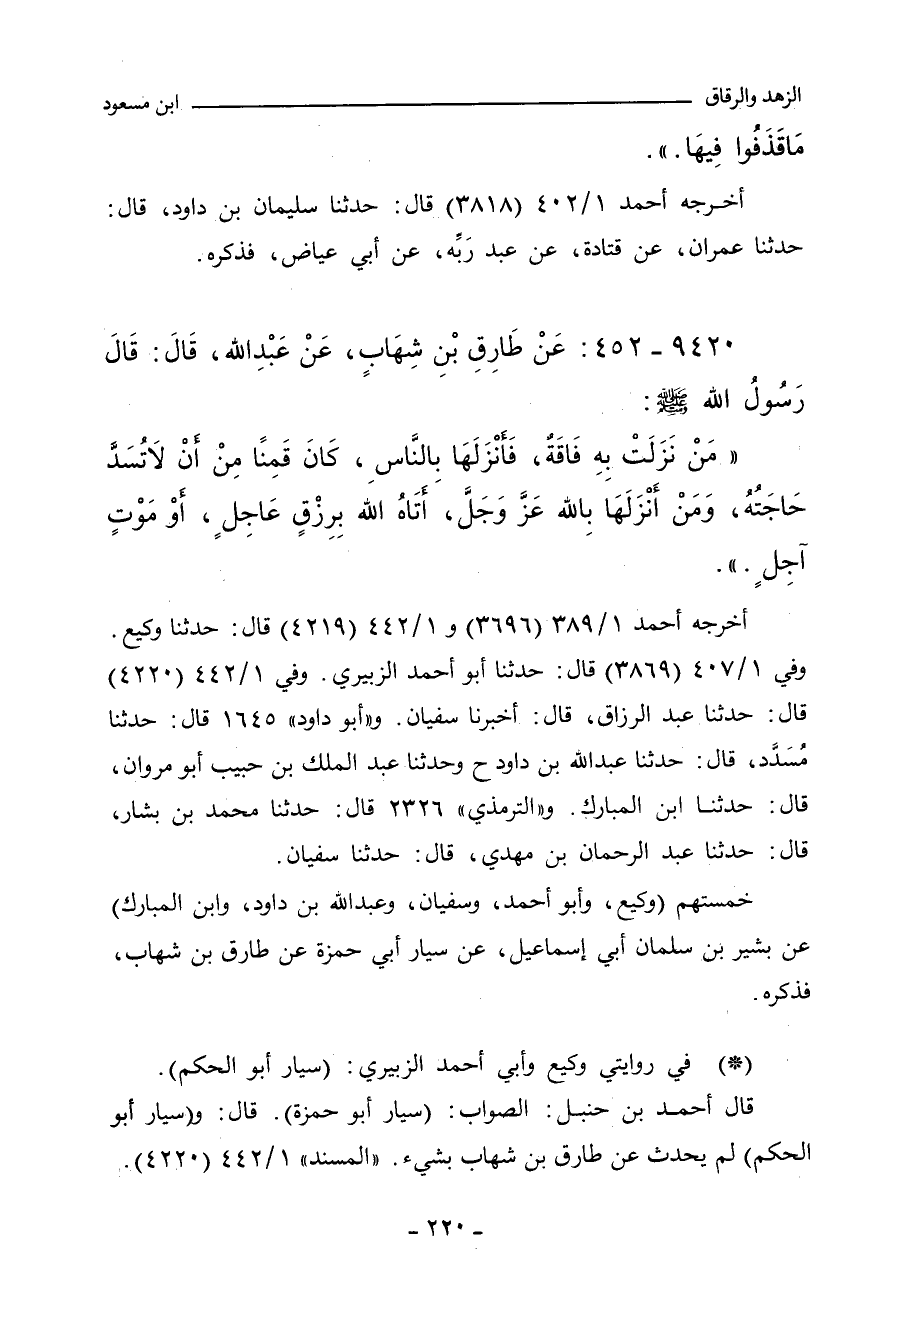 الزهد والرقاق ــــــــــــــــــــ ابن مسعود
مَاقَذَفُوا فِيهَا . » .
أخـرجه أحمد ٤٠٢/١ (٣٨١٨) قال : حدثنا سليمان بن داود، قال :
حدثنا عمران، عن قتادة، عن عبد رَبِّه، عن أبي عياض، فذكره .
٩٤٢٠ ـ ٤٥٢ : عَنْ طَارِقِ بْنِ شِهَابٍ، عَنْ عَبْدِالله، قَالَ : قَالَ
رَسُولُ الله ﷺ :
« مَنْ نَزَلَتْ بِهِ فَاقَةٌ، فَأَنْزَلَهَا بِالنَّاسِ، كَانَ قَمِنًا مِنْ أَنْ لَاتُسَدَّ
حَاجَتُهُ، وَمَنْ أَنْزَلَهَا بِالله عَزَّ وَجَلَّ، أَتَاهُ الله بِرِزْقٍ عَاجِلٍ، أَوْ مَوْتٍ
آجِلٍ . » .
أخرجه أحمد ٣٨٩/١ (٣٦٩٦) و ٤٤٢/١ (٤٢١٩) قال : حدثنا وكيع .
وفي ٤٠٧/١ (٣٨٦٩) قال : حدثنا أبو أحمد الزبيري . وفي ٤٤٢/١ (٤٢٢٠)
قال : حدثنا عبد الرزاق، قال : أخبرنا سفيان . و«أبو داود» ١٦٤٥ قال : حدثنا
مُسَدَّد، قال : حدثنا عبدالله بن داود ح وحدثنا عبد الملك بن حبيب أبو مروان،
قال : حدثنـا ابن المبارك . و«الترمذي» ٢٣٢٦ قال : حدثنا محمد بن بشار،
قال : حدثنا عبد الرحمان بن مهدي، قال : حدثنا سفيان .
خمستهم (وكيع، وأبو أحمد، وسفيان، وعبدالله بن داود، وابن المبارك)
عن بشير بن سلمان أبي إسماعيل، عن سيار أبي حمزة عن طارق بن شهاب،
فذكره .
(*) في روايتي وكيع وأبي أحمد الزبيري : (سيار أبو الحكم) .
قال أحمـد بن حنبـل : الصواب : (سيار أبو حمزة) . قال : و(سيار أبو
الحكم) لم يحدث عن طارق بن شهاب بشيء . «المسند» ٤٤٢/١ (٤٢٢٠) .
ـ ٢٢٠ ـ